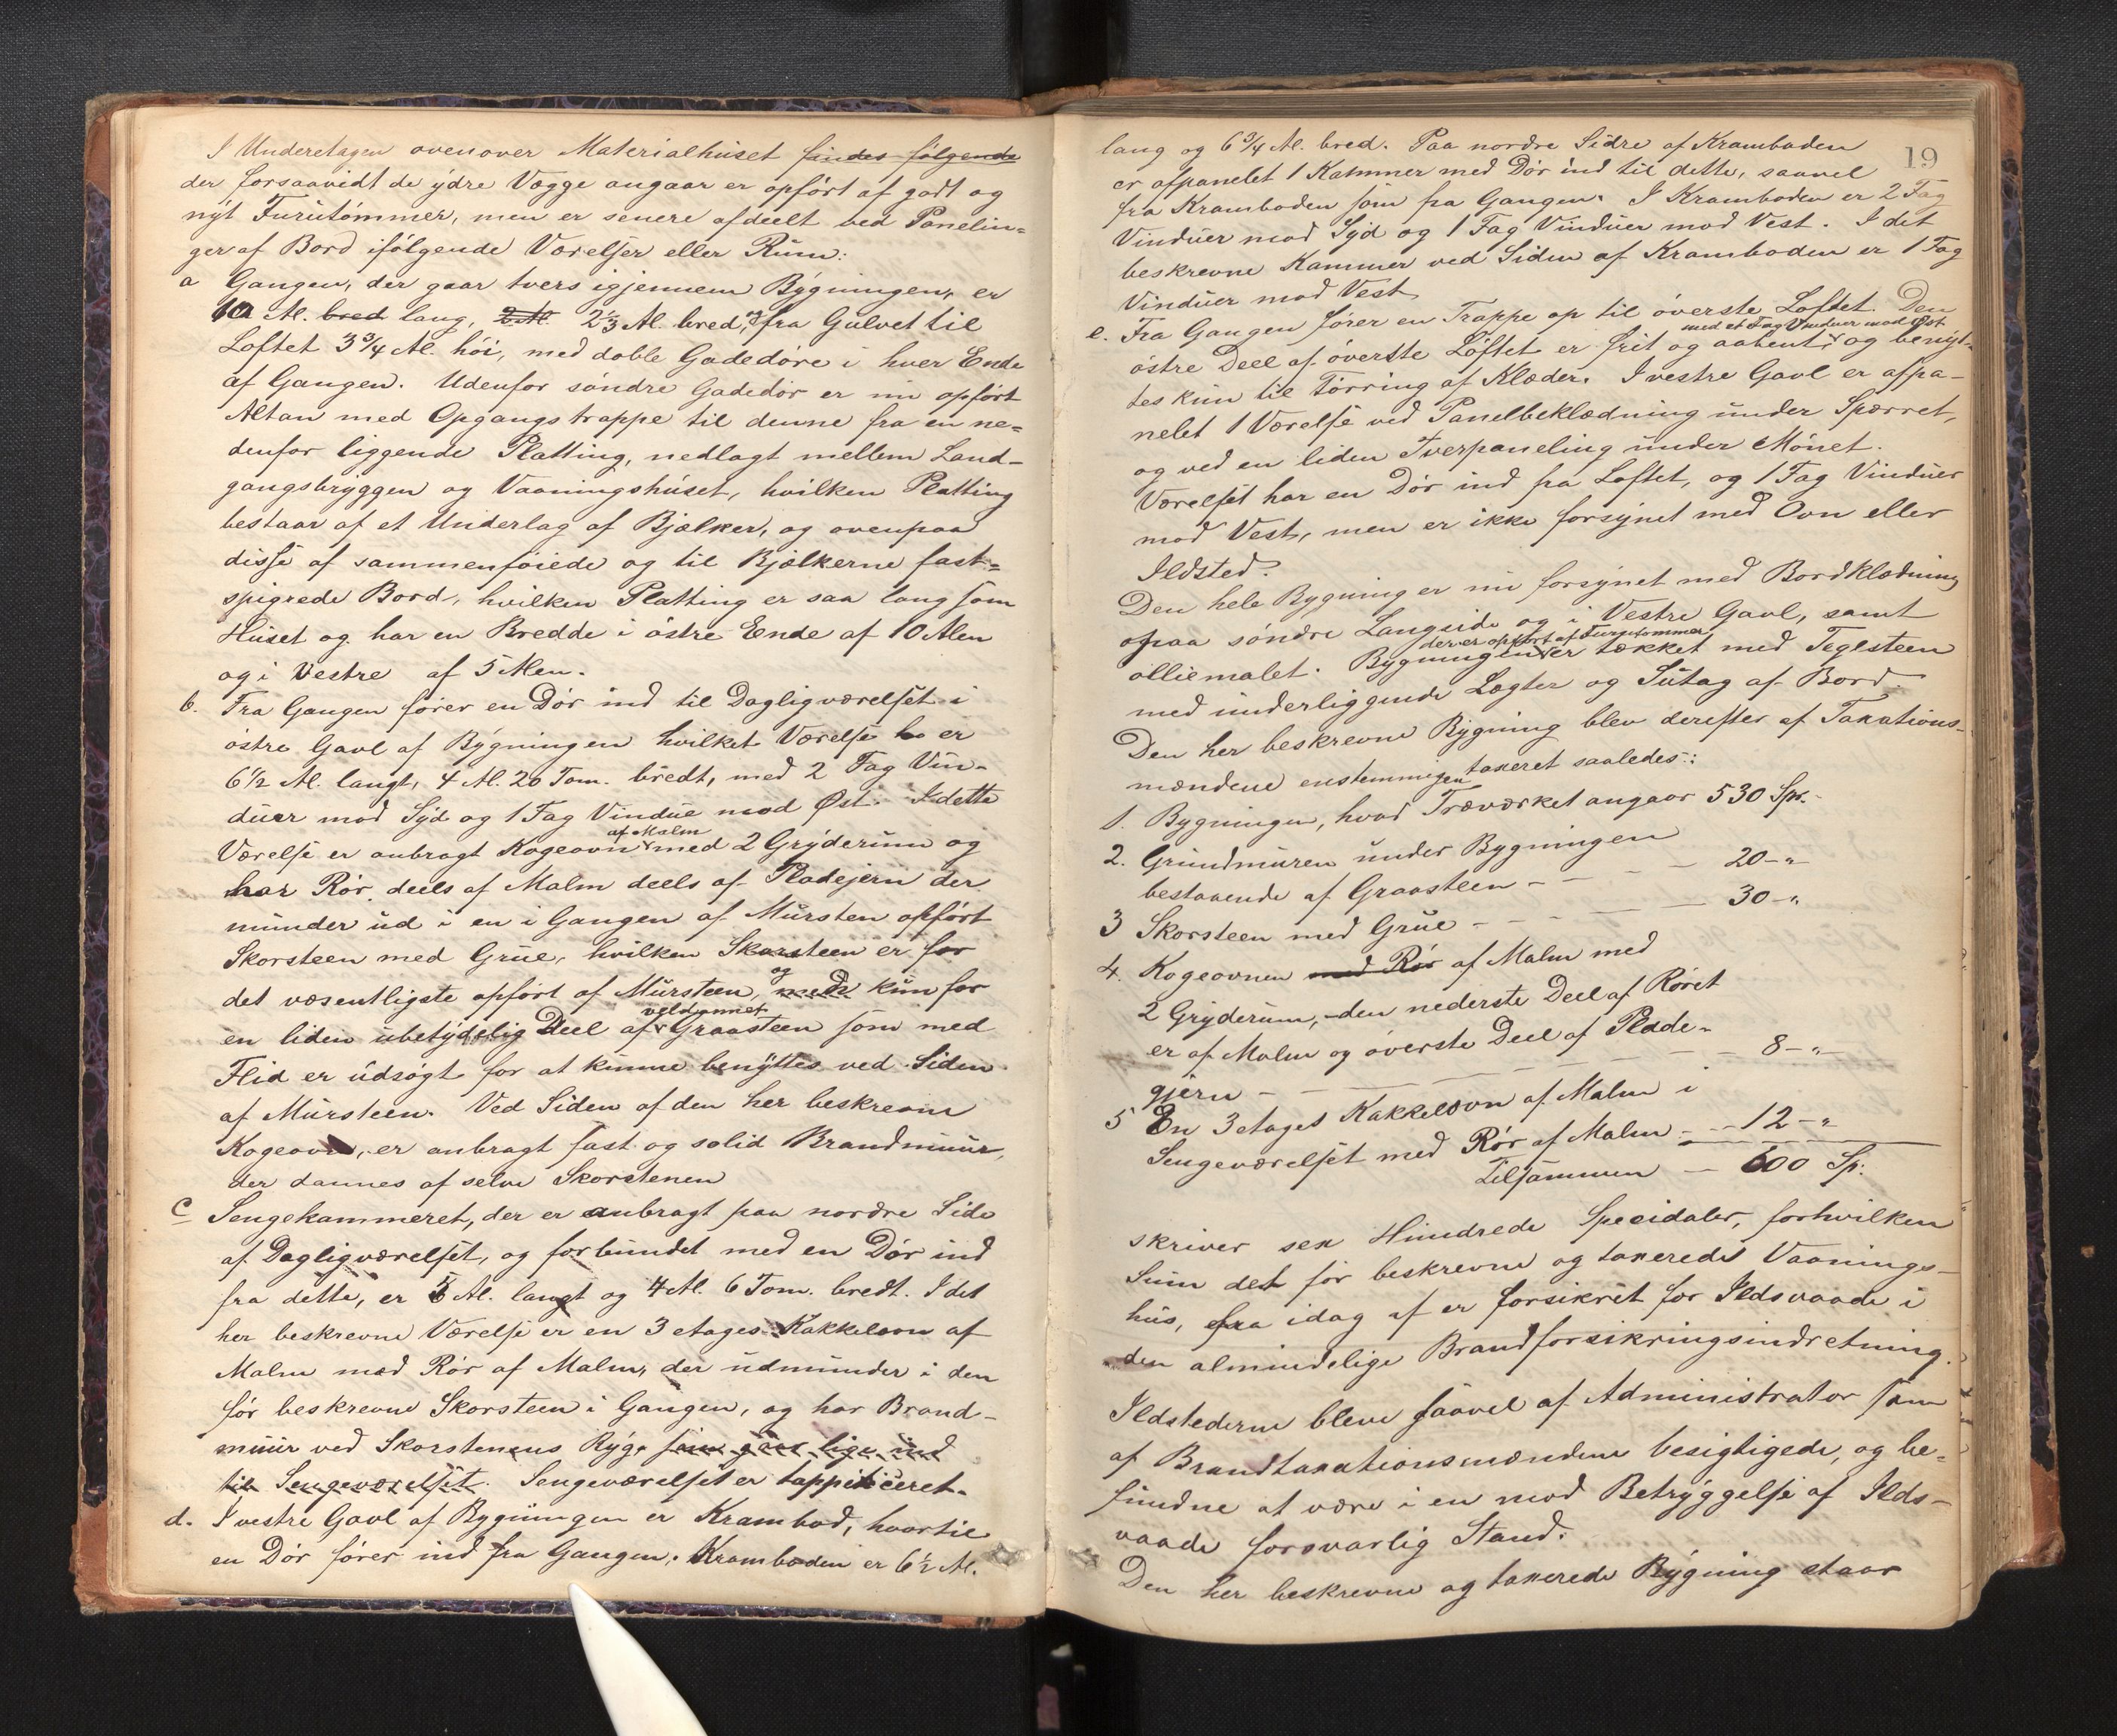 I Underetagen ovenover Materialhuset findes følgende
der forsaavidt de ydre Vægge angaar er opført af godt og
nyt Furutømmer, men er senere afdeelt ved Panelin=
ger af Bord ifølgende Værelser eller Rum:
a Gangen, der gaar tvers igjennem Bygningen, er
10 Al. bred lang, 2 Al. 2⅓ Al. bred, og fra Gulvet til
Loftet 3¾ Al. høi, med doble Gadedøre i hver Ende
af Gangen. Udenfor søndre Gadedør er nu opført
Altan med Opgangstrappe til denne fra en ne=
denfor liggende Platting, nedlagt mellem Land-
gangsbryggen og Vaaningshuset, hvilken Platting
bestaar af et Underlag af Bjælker, og ovenpaa
disse af sammenføiede og til Bjælkerne fast=
spigrede Bord, hvilken Platting er saa lang som
Huset og har en Bredde i østre Ende af 10 Alen
og i Vestre af 5 Alen.
b. Fra Gangen fører en Dør ind til Dagligværelset i
østre Gavl af Bygningen hvilket Værelse er
6½ Al. langt, 4 Al. 20 Tom. bredt, med 2 Fag Vin-
duer mod Syd og 1 Fag Vindue mod Øst. I dette
Værelse er anbragt Kogeovn af Malm med 2 Gryderum og
har Rør, deels af Malm deels af Pladejern der
munder ud i en i Gangen af Mursten opført
Skorsteen med Grue, hvilken Skorsteen er for
det væsentligste opført af Mursteen, og med kun for
en liden ubetydelig Deel af veldannet Graasteen som med
Flid er udsøgt for at kunne benyttes ved Siden
af Mursteen. Ved Siden af den her beskrevne
Kogeovn, er anbragt fast og solid Brandmuur,
der dannes af selve Skorstenen
c Sengekammeret, der er anbragt paa nordre Side
af Dagligværelset, og forbundet med en Dør ind
fra dette, er 5 Al. langt og 4 Al. 6 Tom. bredt. I det
her beskrevne Værelse er en 3 etages Kakkelovn af
Malm med Rør af Malm, der udmunder i den
før beskrevne Skorsteen i Gangen, og har Brand-
muur ved Skorstenens Ryg, som gaar lige ind
til Sengeværelset. Sengeværelset er tappitceret.
d. I vestre Gavl af Bygningen er Krambod, hvortil
en Dør fører ind fra Gangen. Kramboden er 6½ Al.
19
lang og 6¾ Al. bred. Paa nordre Sidre af Kramboden
er afpanelet 1 Kammer med Dør ind til dette, saavel
fra Kramboden som fra Gangen. I Kramboden er 2 Fag
Vinduer mod Syd og 1 Fag Vinduer mod Vest. I det
beskrevne Kammer ved Siden af Kramboden er 1 Fag
Vinduer mod Vest
e. Fra Gangen fører en Trappe op til øverste Loftet. Den
østre Deel af øverste Loftet er frit og aabent med et Fag Vinduer mod Øst og benyt-
tes kun til Tørring af Klæder. I vestre Gavl er afpa-
nelet 1 Værelse ved Panelbeklædning under Sperret,
og ved en liden Tverpaneling under Mønet.
Værelset har en Dør ind fra Loftet, og 1 Fag Vinduer
mod Vest, men er ikke forsynet med Ovn eller
Ildsted.
Den hele Bygning er nu forsynet med Bordklædning
opaa søndre Langside og i Vestre Gavl, samt
olliemalet. Bygningen der er opført af Furutømmer er tækket med Teglsteen
med underliggende Lægter og Sutag af Bord.
Den her beskrevne Bygning blev derefter af Taxations-
mændene enstemmigen taxeret saaledes:
1. Bygningen, hvad Træværket angaar 530 Sp.
2. Grundmuren under Bygningen
bestaaende af Graasteen - - - 20 - "
3 Skorsteen med Grue - - - 30 - "
4. Kogeovnen med Rør af Malm med
2 Gryderum, - den nederste Deel af Røret
er af Malm og øverste Deel af Plade-
gjern - - - 8 - "
5 En 3 etages Kakkelovn af Malm i
Sengeværelset med Rør af Malm - - 12 - "
Tilsammen - 600 Sp.
skriver sex Hundrede Specidaler, forhvilken
Sum det før beskrevne og taxerede Vaanings-
hus, fra idag af er forsikret for Ildsvaade i
den almindelige Brandforsikringsindretning.
Ildstederne bleve saavel af Administrator som
af Brandtaxationsmændene besigtigede, og be-
fundne at være i en mod Betryggelse af Ilds-
vaade forsvarlig Stand.
Den her beskrevne og taxerede Bygning staar